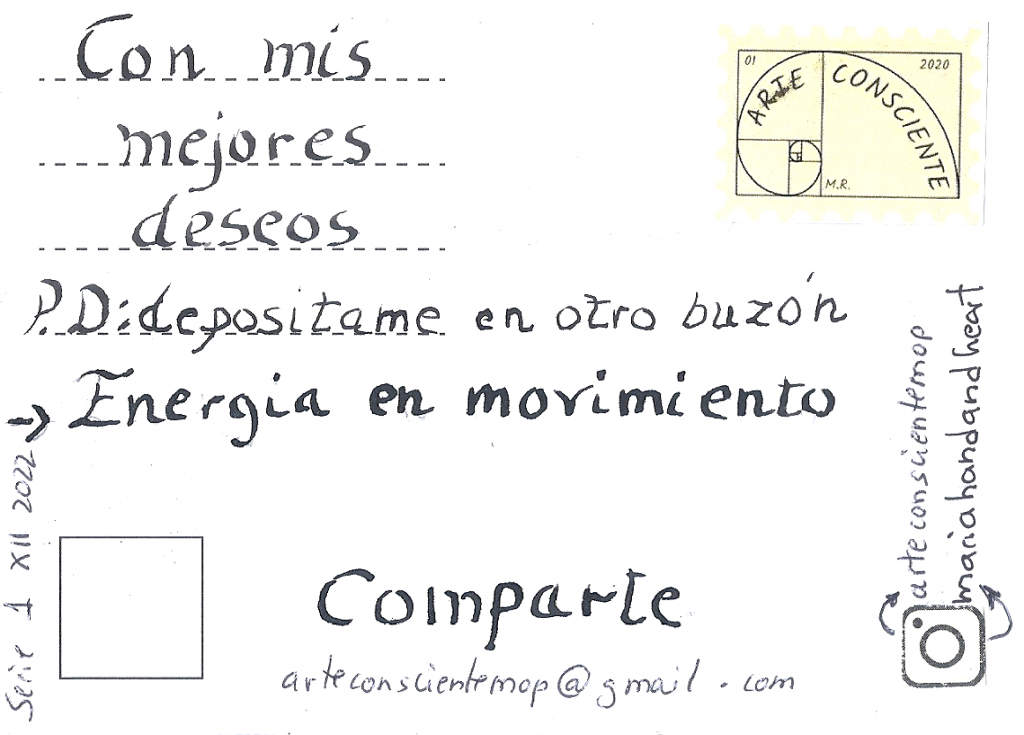 Con mis
mejores
deseos
P.D:depositame en otro buzón
→ Energia en movimiento
Comparte
arteconscientemop@gmail.com
01
2020
ARTE CONSCIENTE
M.R.
Serie 1 XII 2022
arteconscientemop
mariahandandheart